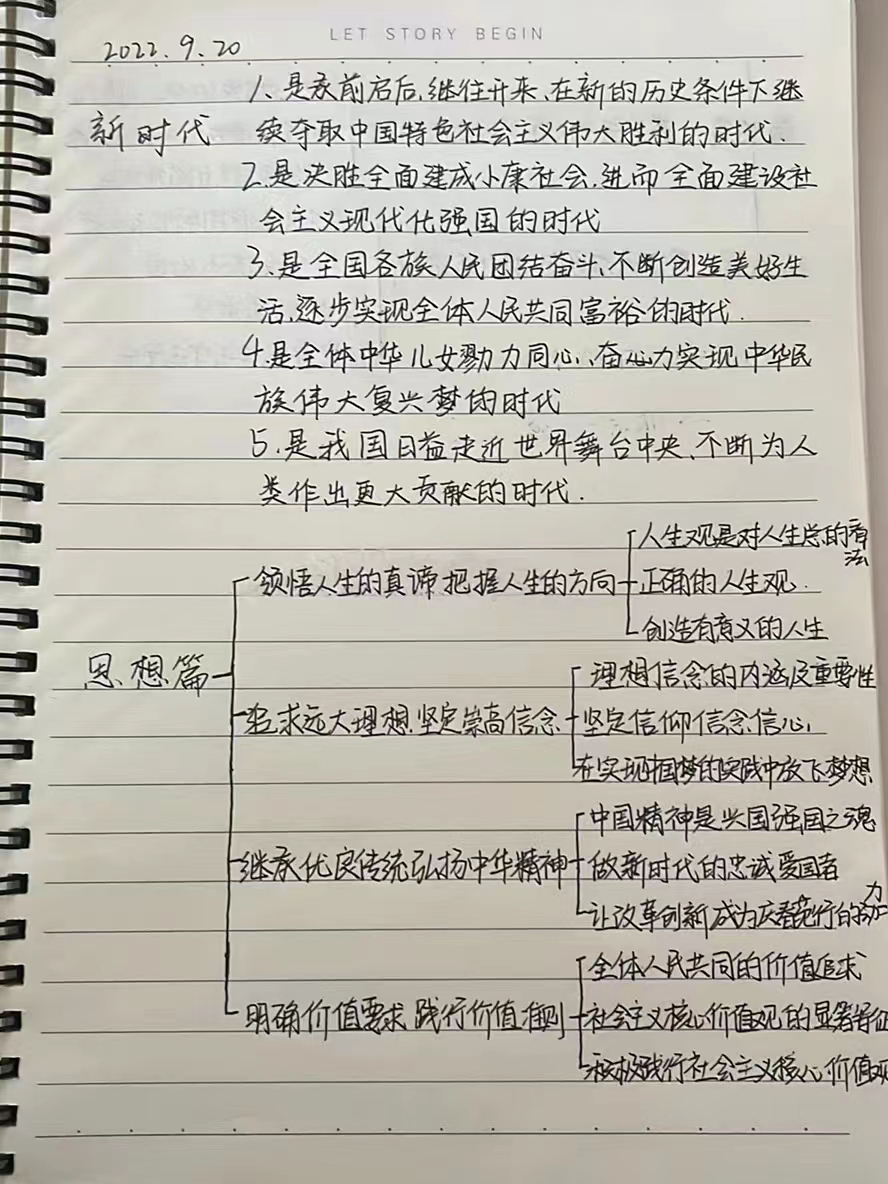 LET STORY BEGIN
2022.9.20
1、是承前启后、继往开来、在新的历史条件下继
新时代 续夺取中国特色社会主义伟大胜利的时代.
2.是决胜全面建成小康社会.进而全面建设社
会主义现代化强国的时代
3、是全国各族人民团结奋斗、不断创造美好生
活、逐步实现全体人民共同富裕的时代.
4.是全体中华儿女勠力同心、奋心力实现中华民
族伟大复兴梦的时代
5、是我国日益走近世界舞台中央、不断为人
类作出更大贡献的时代.
人生观是对人生总的看法
领悟人生的真谛 把握人生的方向 正确的人生观.
创造有意义的人生
思想篇
理想信念的内涵及重要性
追求远大理想.坚定崇高信念 坚定信仰信念信心
在实现中国梦的实践中放飞梦想
中国精神是兴国强国之魂
继承优良传统弘扬中华精神 做新时代的忠诚爱国者
让改革创新成为青春远行的动力
全体人民共同的价值追求
明确价值要求 践行价值准则 社会主义核心价值观的显著特征
积极践行社会主义核心价值观